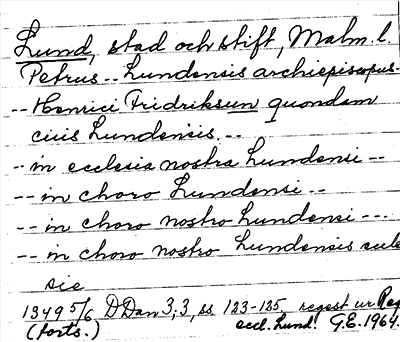 Lund, stad och stift, Malm. l.
Petrus -- Lundensis archiepiscopus --
-- Henrici Fridriksun quondam
ciuis Lundensis --
-- in ecclesia nostra Lundensi --
-- in choro Lundensi --
-- in choro nostro Lundensi ---
-- in choro nostro Lundensis eccle
sie
1349 5/6 DDan 3;3, ss 123-125, regest ur Reg
(forts.) eccl. Lund! G.E. 1964.